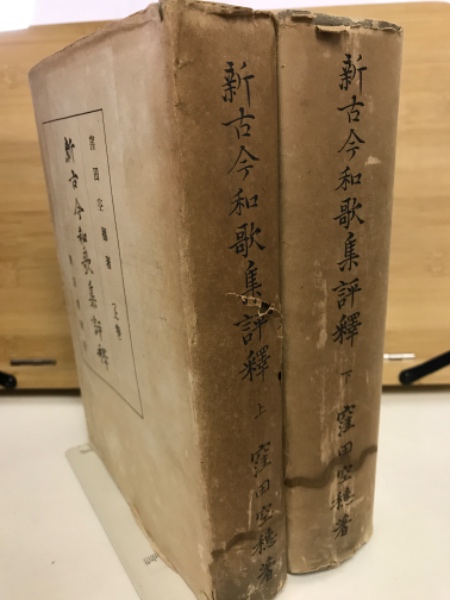 窪田空穂著
新古今和歌集評釋
上巻
新古今和歌集評釋 上 窪田空穂著
新古今和歌集評釋 下 窪田空穂著